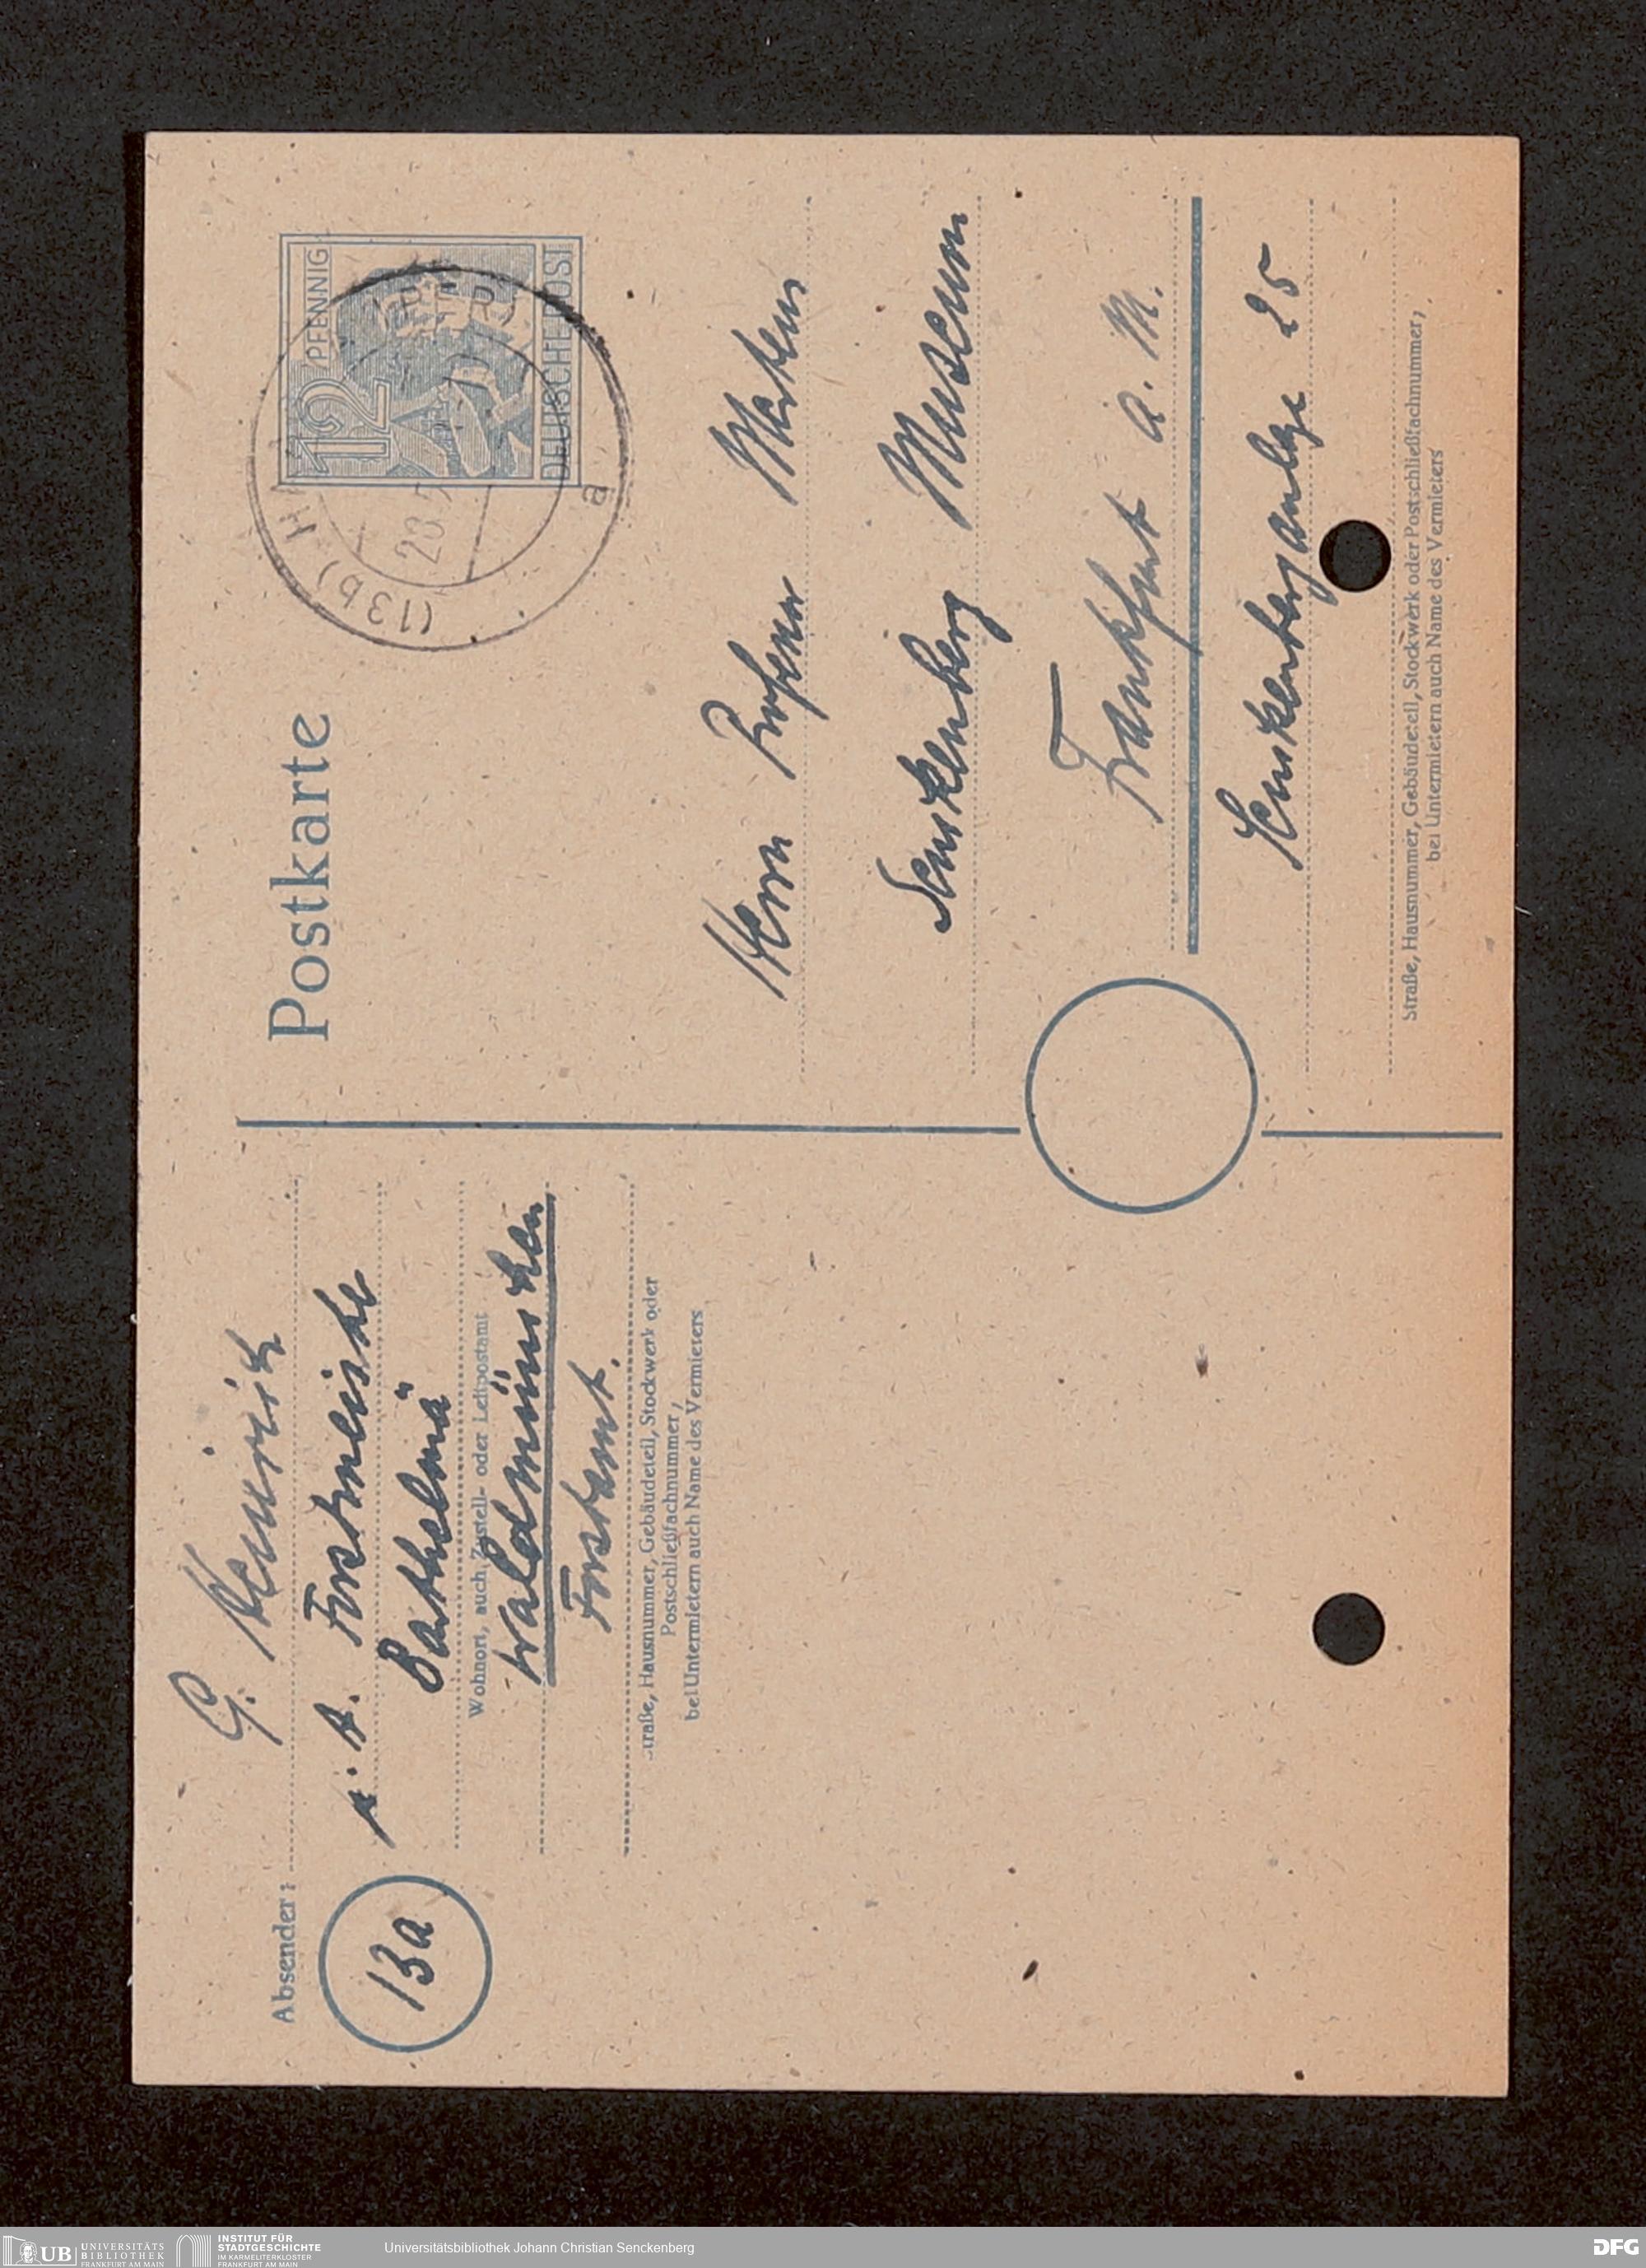 Postkarte
12 PFENNIG
DEUTSCHE POST
(13b)
a
Absender:
G. Heinrich
z. B. Forstmeister
Barthelmä
13a
Wohnort, auch Zustell- oder Leitpostamt
Waldmünchen
Forstamt.
Straße, Hausnummer, Gebäudeteil, Stockwerk oder
Postschließfachnummer,
bei Untermietern auch Name des Vermieters
Herrn Professor Mertens
Senckenberg Museum
Frankfurt a. M.
Senckenberganlage 25
Straße, Hausnummer, Gebäudeteil, Stockwerk oder Postschließfachnummer,
bei Untermietern auch Name des Vermieters
UB UNIVERSITÄTS
BIBLIOTHEK
FRANKFURT AM MAIN
INSTITUT FÜR
STADTGESCHICHTE
IM KARMELITERKLOSTER
FRANKFURT AM MAIN
Universitätsbibliothek Johann Christian Senckenberg
DFG